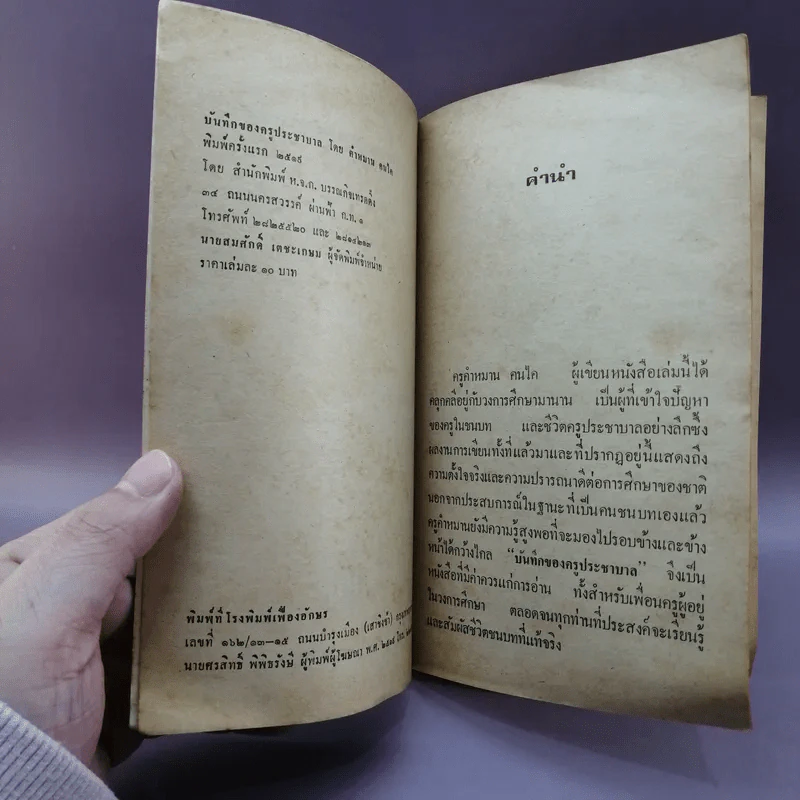 บันทึกของครูประชาบาล โดย คำหมาน คนไค
พิมพ์ครั้งแรก ๒๕๑๙
โดย สำนักพิมพ์ ห.จ.ก. บรรณกิจเทรดดิ้ง
๓๔ ถนนนครสวรรค์ ผ่านฟ้า ก.ท. ๑
โทรศัพท์ ๒๘๒๕๕๒๐ และ ๒๘๑๔๒๑๓
นายสมศักดิ์ เตชะเกษม ผู้จัดพิมพ์จำหน่าย
ราคาเล่มละ ๑๐ บาท
พิมพ์ที่โรงพิมพ์เฟื่องอักษร
เลขที่ ๑๖๒/๑๓–๑๕ ถนนบำรุงเมือง (เสาชิงช้า)
นายศรสิทธิ์ พิพิธรังษี ผู้พิมพ์ผู้โฆษณา พ.ศ.
คำนำ
ครูคำหมาน คนไค ผู้เขียนหนังสือเล่มนี้ได้
คลุกคลีอยู่กับวงการศึกษามานาน เป็นผู้ที่เข้าใจปัญหา
ของครูในชนบท และชีวิตครูประชาบาลอย่างลึกซึ้ง
ผลงานการเขียนทั้งที่แล้วมาและที่ปรากฏอยู่นี้แสดงถึง
ความตั้งใจจริงและความปรารถนาดีต่อการศึกษาของชาติ
นอกจากประสบการณ์ในฐานะที่เป็นคนชนบทเองแล้ว
ครูคำหมานยังมีความรู้สูงพอที่จะมองไปรอบข้างและข้าง
หน้าได้กว้างไกล “บันทึกของครูประชาบาล” จึงเป็น
หนังสือที่มีค่าควรแก่การอ่าน ทั้งสำหรับเพื่อนครูผู้อยู่
ในวงการศึกษา ตลอดจนทุกท่านที่ประสงค์จะเรียนรู้
และสัมผัสชีวิตชนบทที่แท้จริง